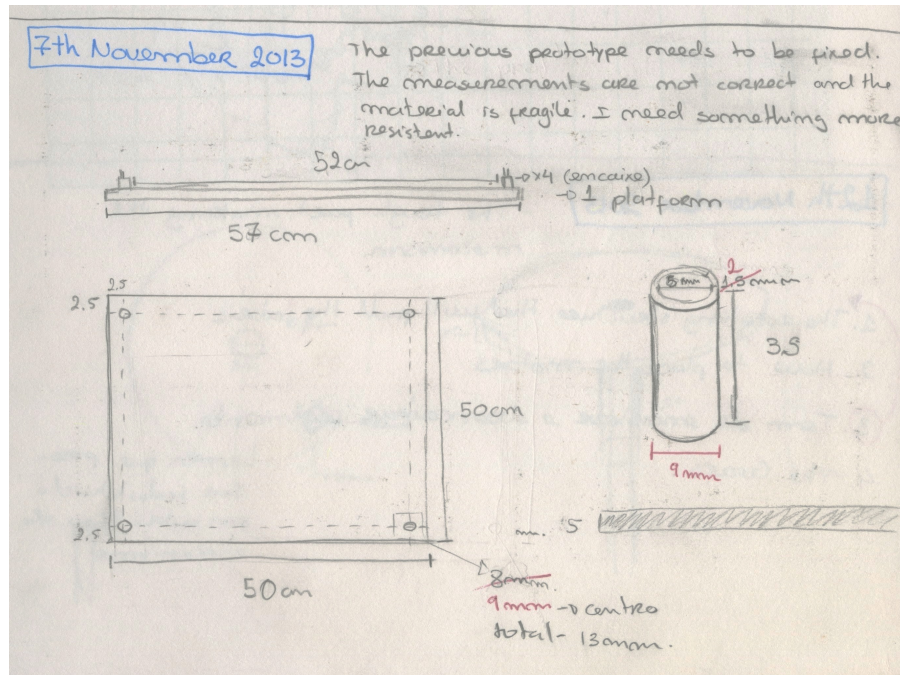 7th November 2013
The previous prototype needs to be fixed.
The measurements are not correct and the
material is fragile. I need something more
resistent.
52cm
→ x4 (encaixe)
→ 1 platform
57 cm
2.5
2.5
50cm
2.5
50 cm
8mm.
9mm → centro
total - 13mm.
5 mm
2
1.5 mm
35
9mm
mm. 5